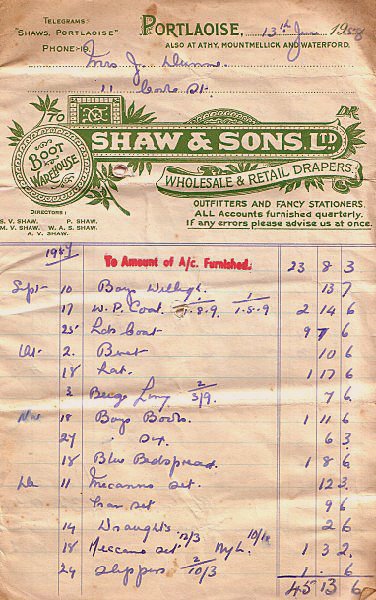 TELEGRAMS:
"SHAWS, PORTLAOISE"
PHONE:-19.
PORTLAOISE, 13th June 1958
ALSO AT ATHY, MOUNTMELLICK AND WATERFORD.
Mrs J. Dunne.
11 St.
TO
BOOT WAREHOUSE
SHAW & SONS, LTD
DR
WHOLESALE & RETAIL DRAPERS,
OUTFITTERS AND FANCY STATIONERS.
ALL Accounts furnished quarterly.
If any errors please advise us at once.
DIRECTORS:
S. V. SHAW. P. SHAW.
M. V. SHAW. W. A. S. SHAW.
A. V. SHAW.
1957
To Amount of A/c. Furnished. 23 8 3
Sept 10 Boys 13 7
17 W.P. Coat. 1-8-9. 1-5-9 2 14 6
25 Coat 9 7 6
Oct. 2. 10 6
18 Hat. 1 17 6
3 2 3/9. 7 6
Nov 18 Boys Boots. 1 11 6
27 6 3
18 Blue Bedspread. 1 8 6
Dec 11 Meccano Set. 12 3
set 9 6
14 Draughts 2 6
18 Meccano set 12/3 10/11 1 3 2
24 Slippers 2 10/3 1 . 6
45 13 6